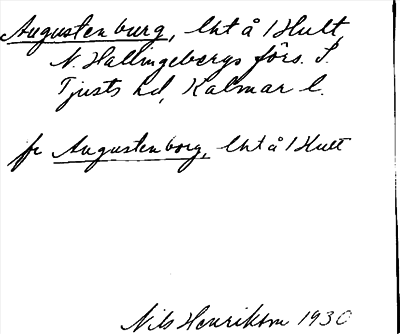 Augustenburg, lht å 1 Hult,
N. Hallingebergs förs. S.
Tjusts hd, Kalmar l.
fr Augustenborg, lht å 1 Hult
Nils Henrikson 1930